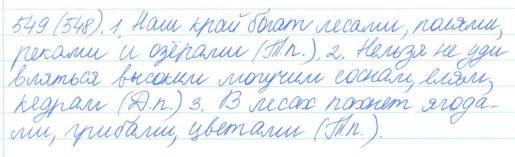 549 (548). 1. Наш край богат лесами, полями,
реками и озёрами (Тп.). 2. Нельзя не уди
вляться высоким могучим соснам, елям,
кедрам (Д.п.) 3. В лесах пахнет ягода-
ми, грибами, цветами (Тп.).